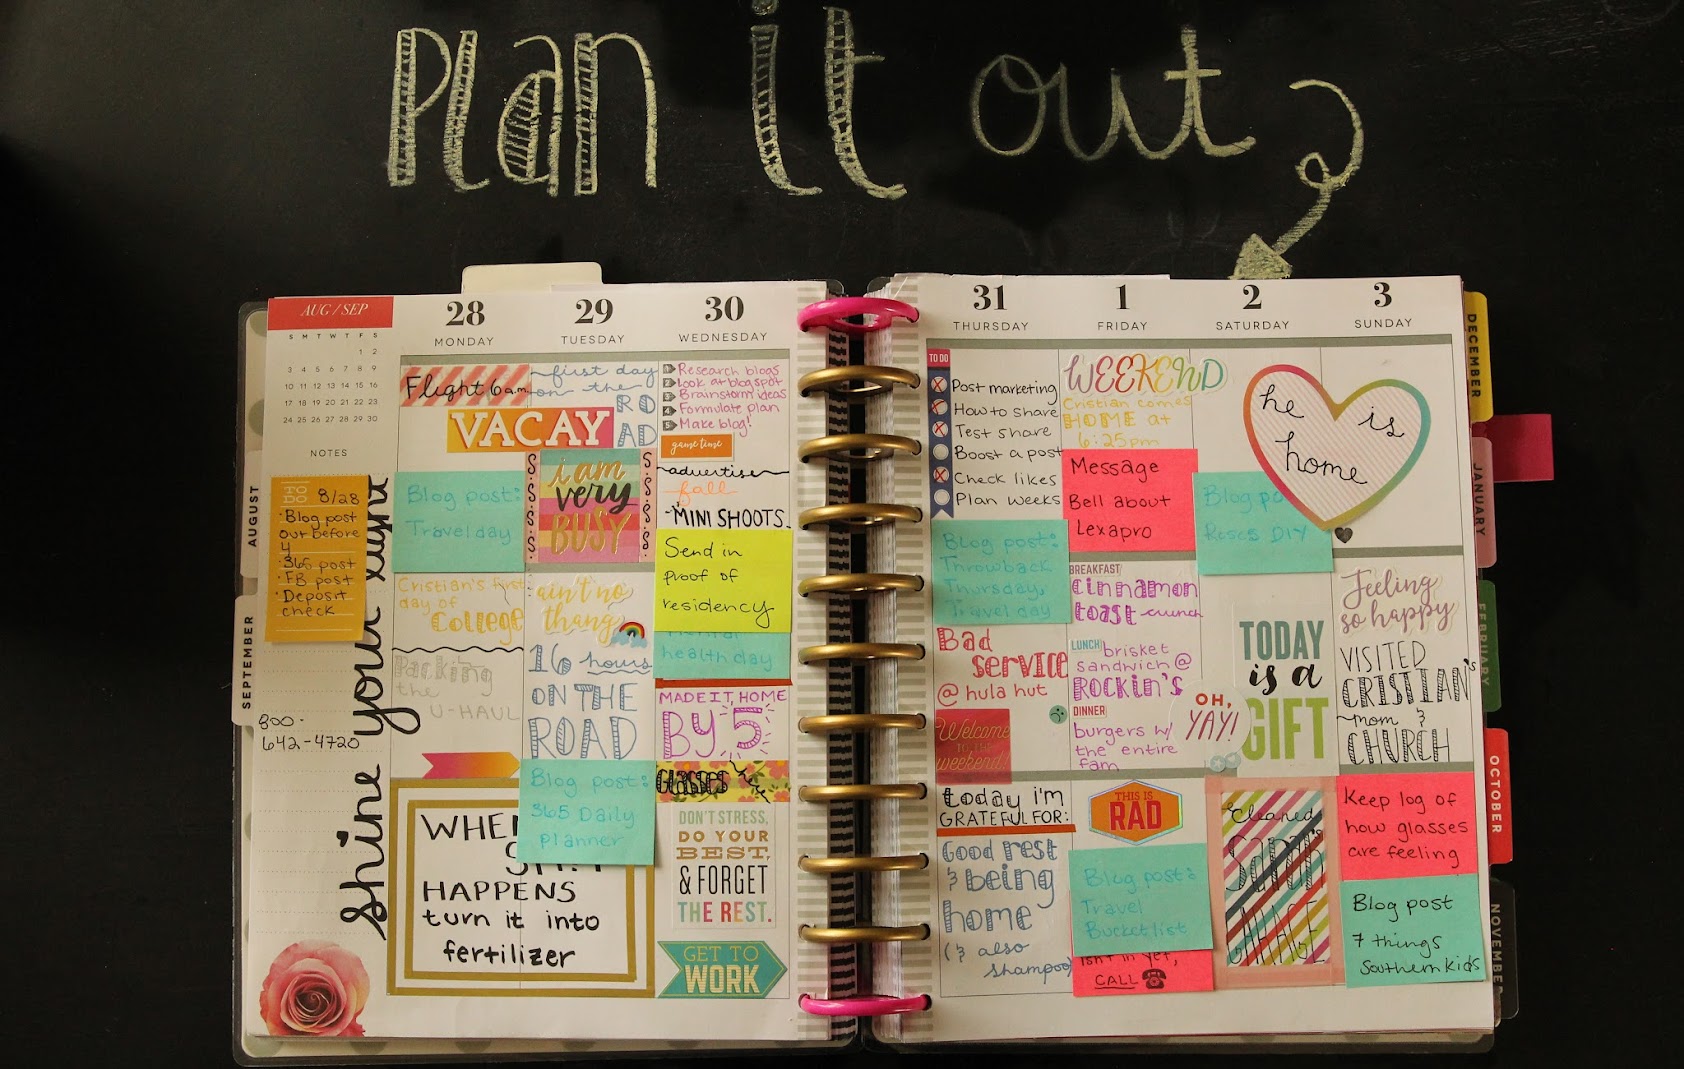 Plan it out
AUG / SEP
S M T W T F S
1 2
3 4 5 6 7 8 9
10 11 12 13 14 15 16
17 18 19 20 21 22 23
24 25 26 27 28 29 30
NOTES
8/28
Blog post
out before
4
365 post
FB post
Deposit
check
800-
642-4720
shine your light
AUGUST
SEPTEMBER
28
MONDAY
Flight 6am
VACAY
Blog post:
Travel day
Cristian's first
day of
College
Packing
the
U-HAUL
WHEN
HAPPENS
turn it into
fertilizer
29
TUESDAY
first day
on the
ROAD
i am
very
BUSY
ain't no
thang
16 hours
ON THE
ROAD
Blog post:
365 Daily
planner
30
WEDNESDAY
1 Research blogs
2 Look at blogspot
3 Brainstorm ideas
4 Formulate plan
5 Make blog!
game time
advertise
fall
MINI SHOOTS
Send in
proof of
residency
health day
MADE IT HOME
BY 5
Glasses
DON'T STRESS,
DO YOUR
BEST,
& FORGET
THE REST.
GET TO
WORK
31
THURSDAY
TO DO
Post marketing
How to share
Test share
Boost a post
Check likes
Plan weeks
Blog post:
Throwback
Thursday,
Travel day
Bad
service
@ hula hut
Welcome
TO THE
weekend!
today i'm
GRATEFUL FOR:
Good rest
& being
home
(& also
shampoo)
1
FRIDAY
WEEKEND
Cristian comes
HOME at
6:25pm
Message
Bell about
Lexapro
BREAKFAST
cinnamon
toast crunch
LUNCH brisket
sandwich @
ROCKIN'S
DINNER
burgers w/
the entire
fam
THIS IS
RAD
Blog post:
Travel
Bucketlist
isn't in yet,
CALL
2
SATURDAY
Blog po
Roses DIY
OH,
YAY!
TODAY
is a
GIFT
Cleaned
Sarai's
GARAGE
3
SUNDAY
he is
home
Feeling
so happy
VISITED
CRISTIAN's
mom &
CHURCH
Keep log of
how glasses
are feeling
Blog post
7 things
Southern kids
DECEMBER
JANUARY
FEBRUARY
OCTOBER
NOVEMBER